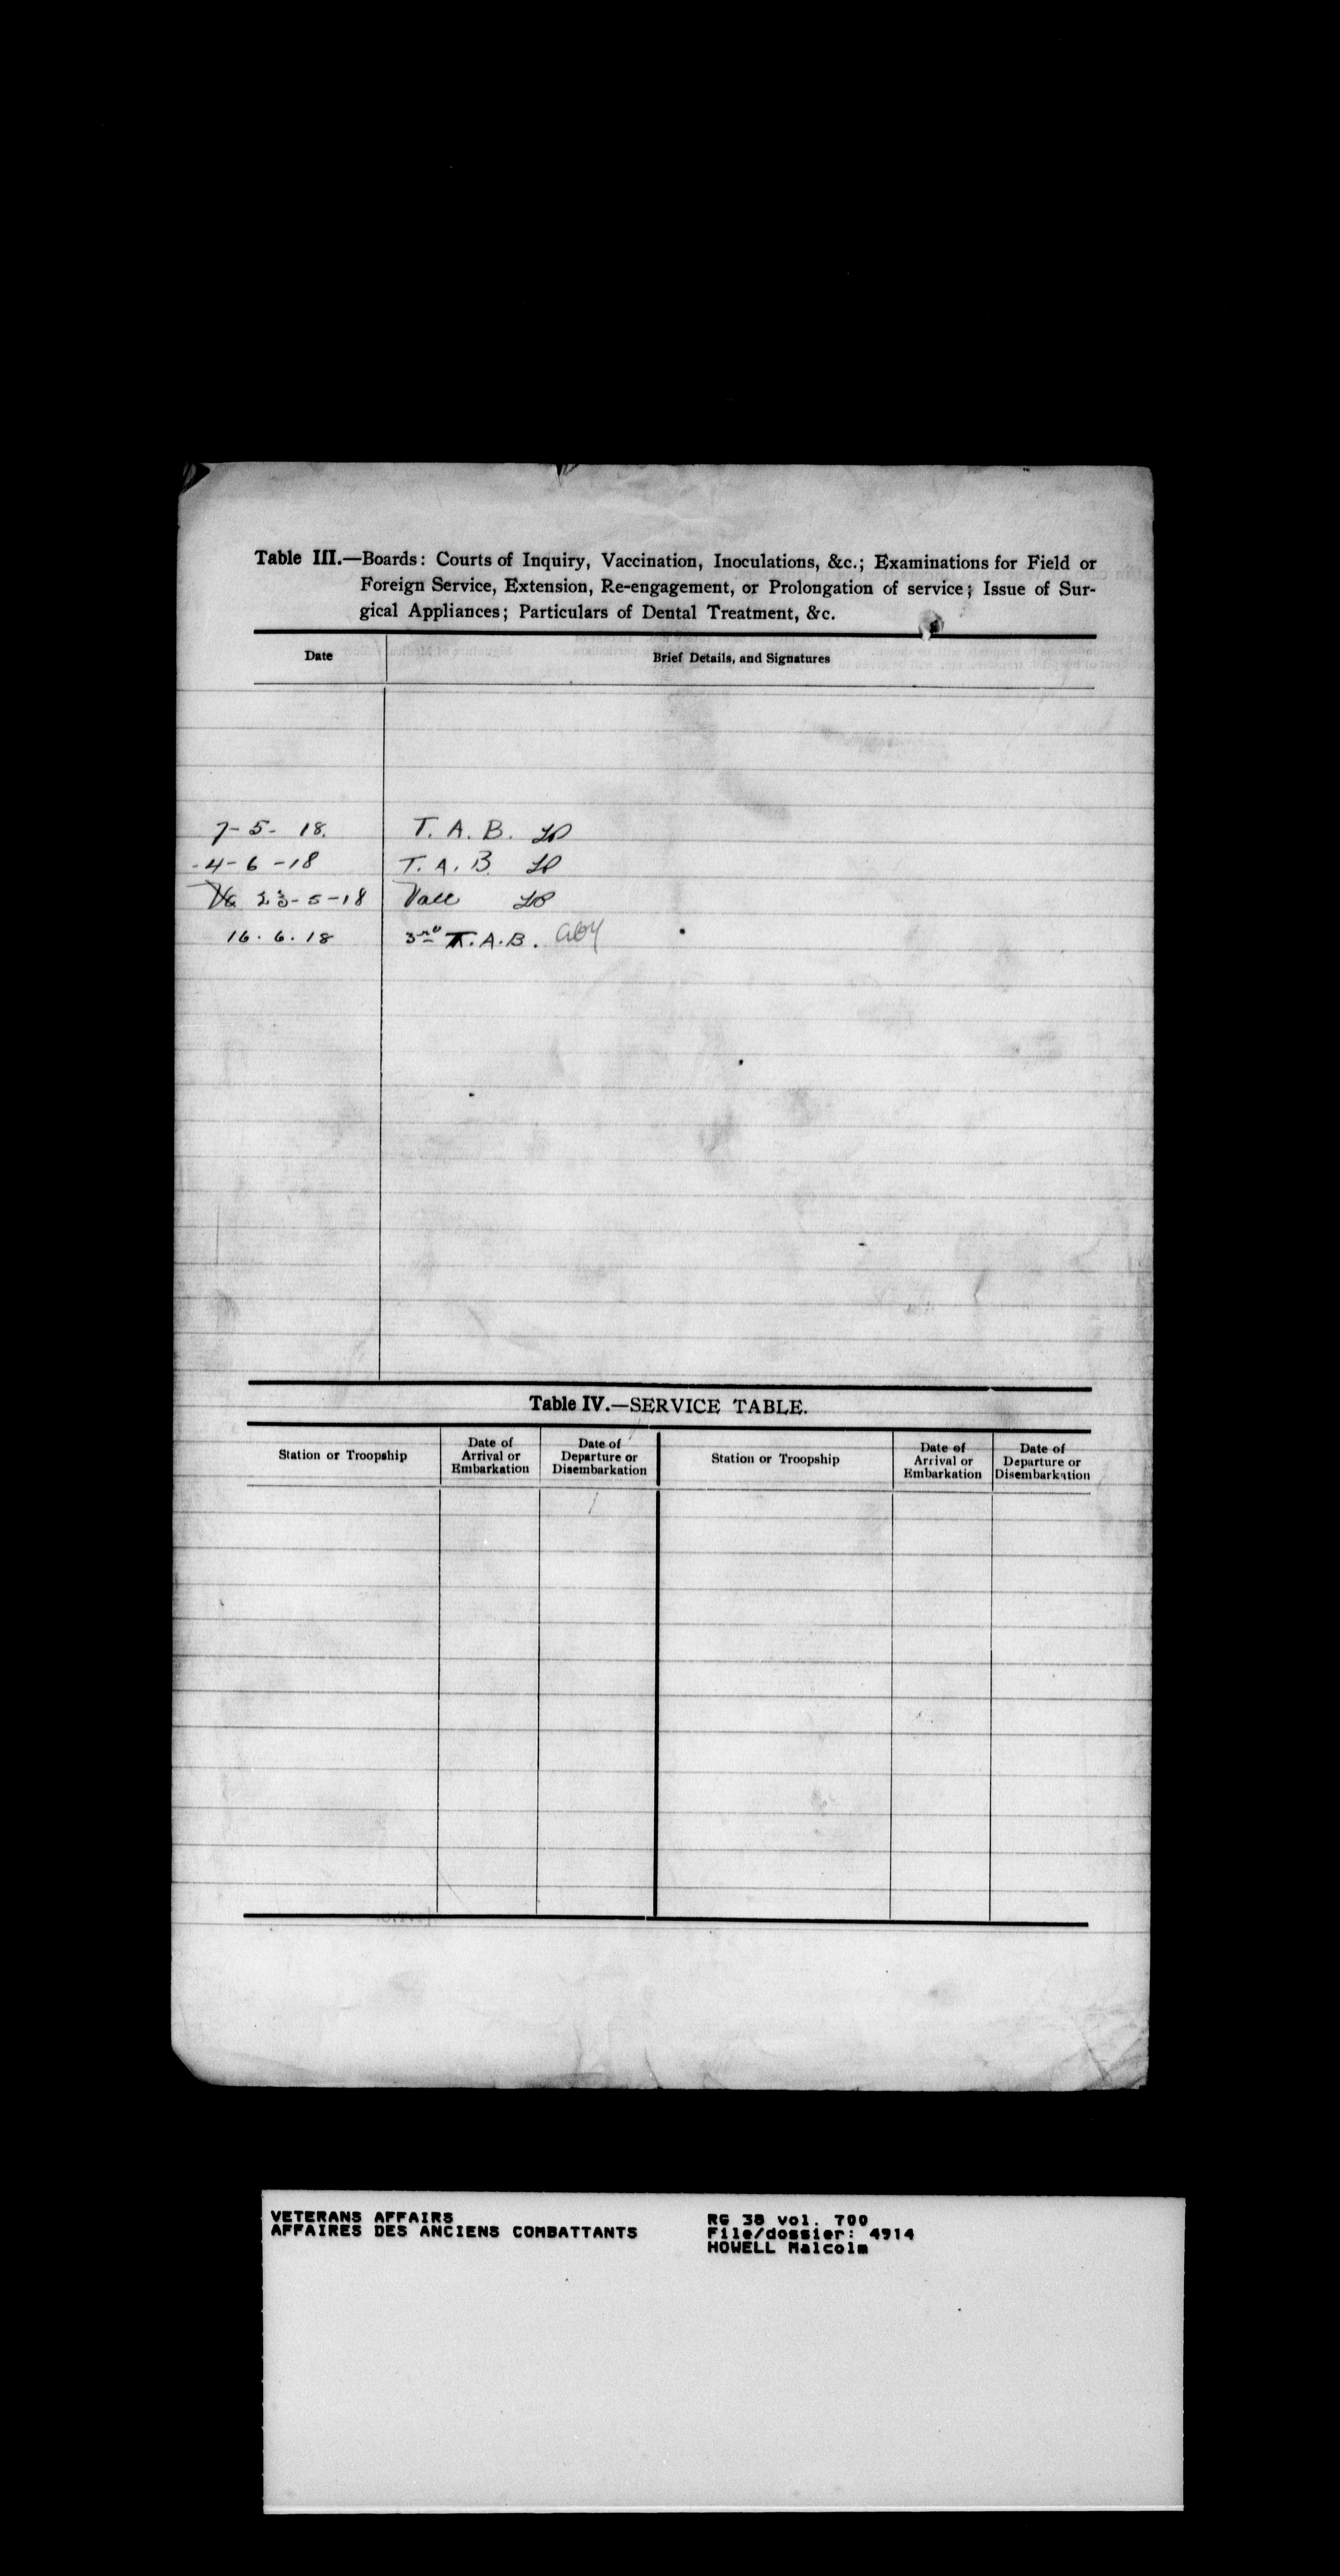 Table III.—Boards: Courts of Inquiry, Vaccination, Inoculations, &c.; Examinations for Field or
Foreign Service, Extension, Re-engagement, or Prolongation of service; Issue of Sur-
gical Appliances; Particulars of Dental Treatment, &c.
Date Brief Details, and Signatures
7-5- 18. T. A. B.
4-6-18 T. A. B
23-5-18 Vacc
16.6.18 3rd T.A.B.
Table IV.—SERVICE TABLE.
Station or Troopship
Date of
Arrival or
Embarkation
Date of
Departure or
Disembarkation
Station or Troopship
Date of
Arrival or
Embarkation
Date of
Departure or
Disembarkation
VETERANS AFFAIRS
AFFAIRES DES ANCIENS COMBATTANTS
RG 38 vol. 700
File/dossier: 4914
HOWELL Malcolm